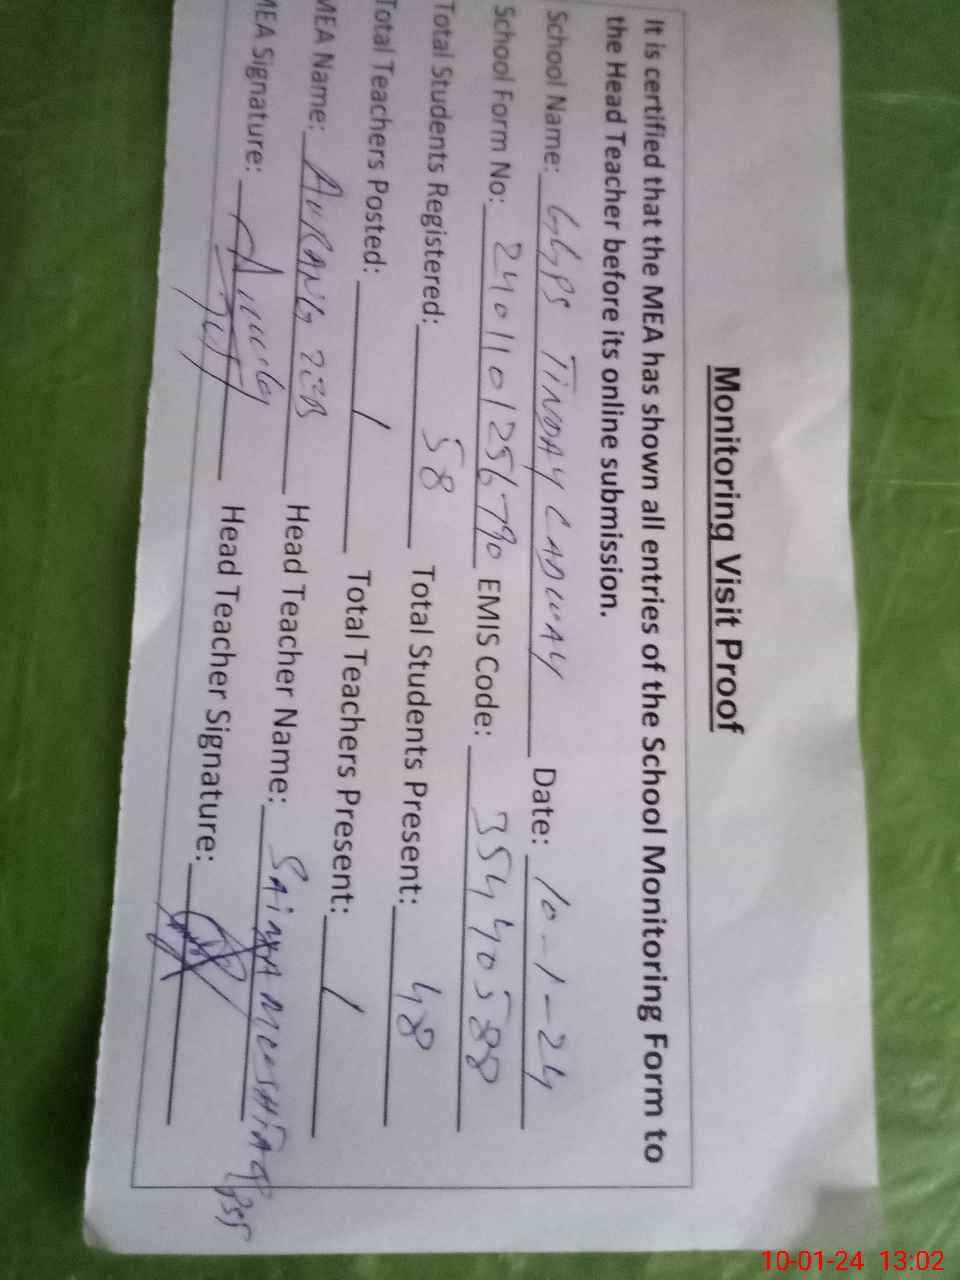 Monitoring Visit Proof
It is certified that the MEA has shown all entries of the School Monitoring Form to
the Head Teacher before its online submission.
School Name: GGPS TINDAY LADWAY Date: 10-1-24
School Form No: 2401101256790 EMIS Code: 35440588
Total Students Registered: 58 Total Students Present: 48
Total Teachers Posted: 1 Total Teachers Present: 1
MEA Name: AURANG ZEB Head Teacher Name: Saima MUSHTAQ PST
MEA Signature: Head Teacher Signature:
10-01-24 13:02